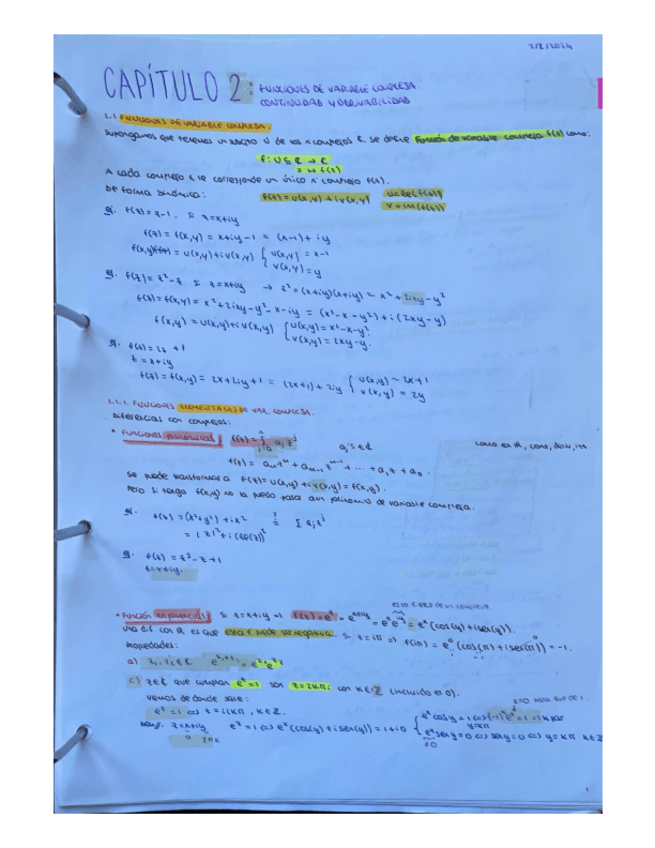 2/2/2024
CAPÍTULO 2: FUNCIONES DE VARIABLE COMPLEJA.
CONTINUIDAD Y DERIVABILIDAD
1.1 FUNCIONES DE VARIABLE COMPLEJA.
Supongamos que tenemos un U de los complejos ℂ, se define función de variable compleja f(z) como:
f: U ⊆ ℂ → ℂ
z → f(z)
A cada complejo z le corresponde un único nº complejo f(z).
De forma binómica: f(z) = u(x,y) + i v(x,y) u = Re(f(z))
v = Im(f(z))
ej. f(z) = z-1. si z=x+iy
f(z) = f(x,y) = x+iy-1 = (x-1) + iy
f(x,y) = u(x,y)+i v(x,y) { u(x,y) = x-1
v(x,y) = y
ej. f(z) = z²-z si z=x+iy → z² = (x+iy)(x+iy) = x² + 2ixy - y²
f(z) = f(x,y) = x²+2ixy-y²-x-iy = (x²-x-y²)+i(2xy-y)
f(x,y) = u(x,y)+i v(x,y) { u(x,y) = x²-x-y².
v(x,y) = 2xy-y.
ej. f(z) = 2z+1
z = x+iy
f(z) = f(x,y) = 2x+2iy+1 = (2x+1)+2iy { u(x,y) = 2x+1
v(x,y) = 2y
1.1.1. FUNCIONES ELEMENTALES DE VAR. COMPLEJA.
Diferencias con complejos:
• FUNCIONES polinómicas f(z) = Σ aⱼ zʲ aⱼ's ∈ ℂ como en ℝ,
f(z) = aₙzⁿ + aₙ₋₁zⁿ⁻¹ + ... + a₁z + a₀.
Se puede transformar a f(z) = u(x,y)+i v(x,y) = f(x,y).
Pero si tengo f(x,y) no la puedo pasar a un polinomio de variable compleja.
ej. f(z) = (x²+y²)+ix² =? Σ aⱼzʲ
= |z|²+i(Re(z))²
ej. f(z) = z³-z+1
z=x+iy.
• Función exponencial: si z=x+iy ⇒ f(z) = eᶻ = eˣ⁺ⁱʸ = eˣ eⁱʸ = eˣ(cos(y)+isen(y)).
Una dif. con ℝ es que esta sí puede ser negativa. Si z=iπ ⇒ f(iπ) = e⁰(cos(π)+isen(π)) = -1.
Propiedades:
a) z₁, z₂ ∈ ℂ eᶻ¹⁺ᶻ² = eᶻ¹ · eᶻ²
c) z∈ℂ que cumplan eᶻ=1 son z=2kπi con k∈ℤ (incluido el 0).
Veamos de donde sale:
eᶻ=1 ⇔ z=i2kπ, k∈ℤ.
z=x+iy eᶻ=1 ⇔ eˣ(cos(y)+isen(y)) = 1+i0 { eˣ cos y = 1
eˣ sen y = 0 ⇔ sen y = 0 ⇔ y = kπ k∈ℤ